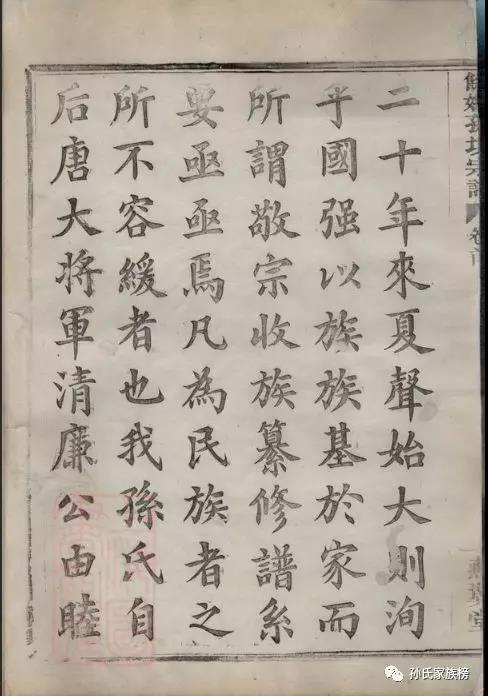 餘姚孫境宗譜 卷首
二十年來夏聲始大則洵
乎國强以族族基於家而
所謂敬宗收族纂修譜系
要亟亟焉凡為民族者之
所不容緩者也我孫氏自
后唐大將軍清廉公由睦
孙氏家族榜